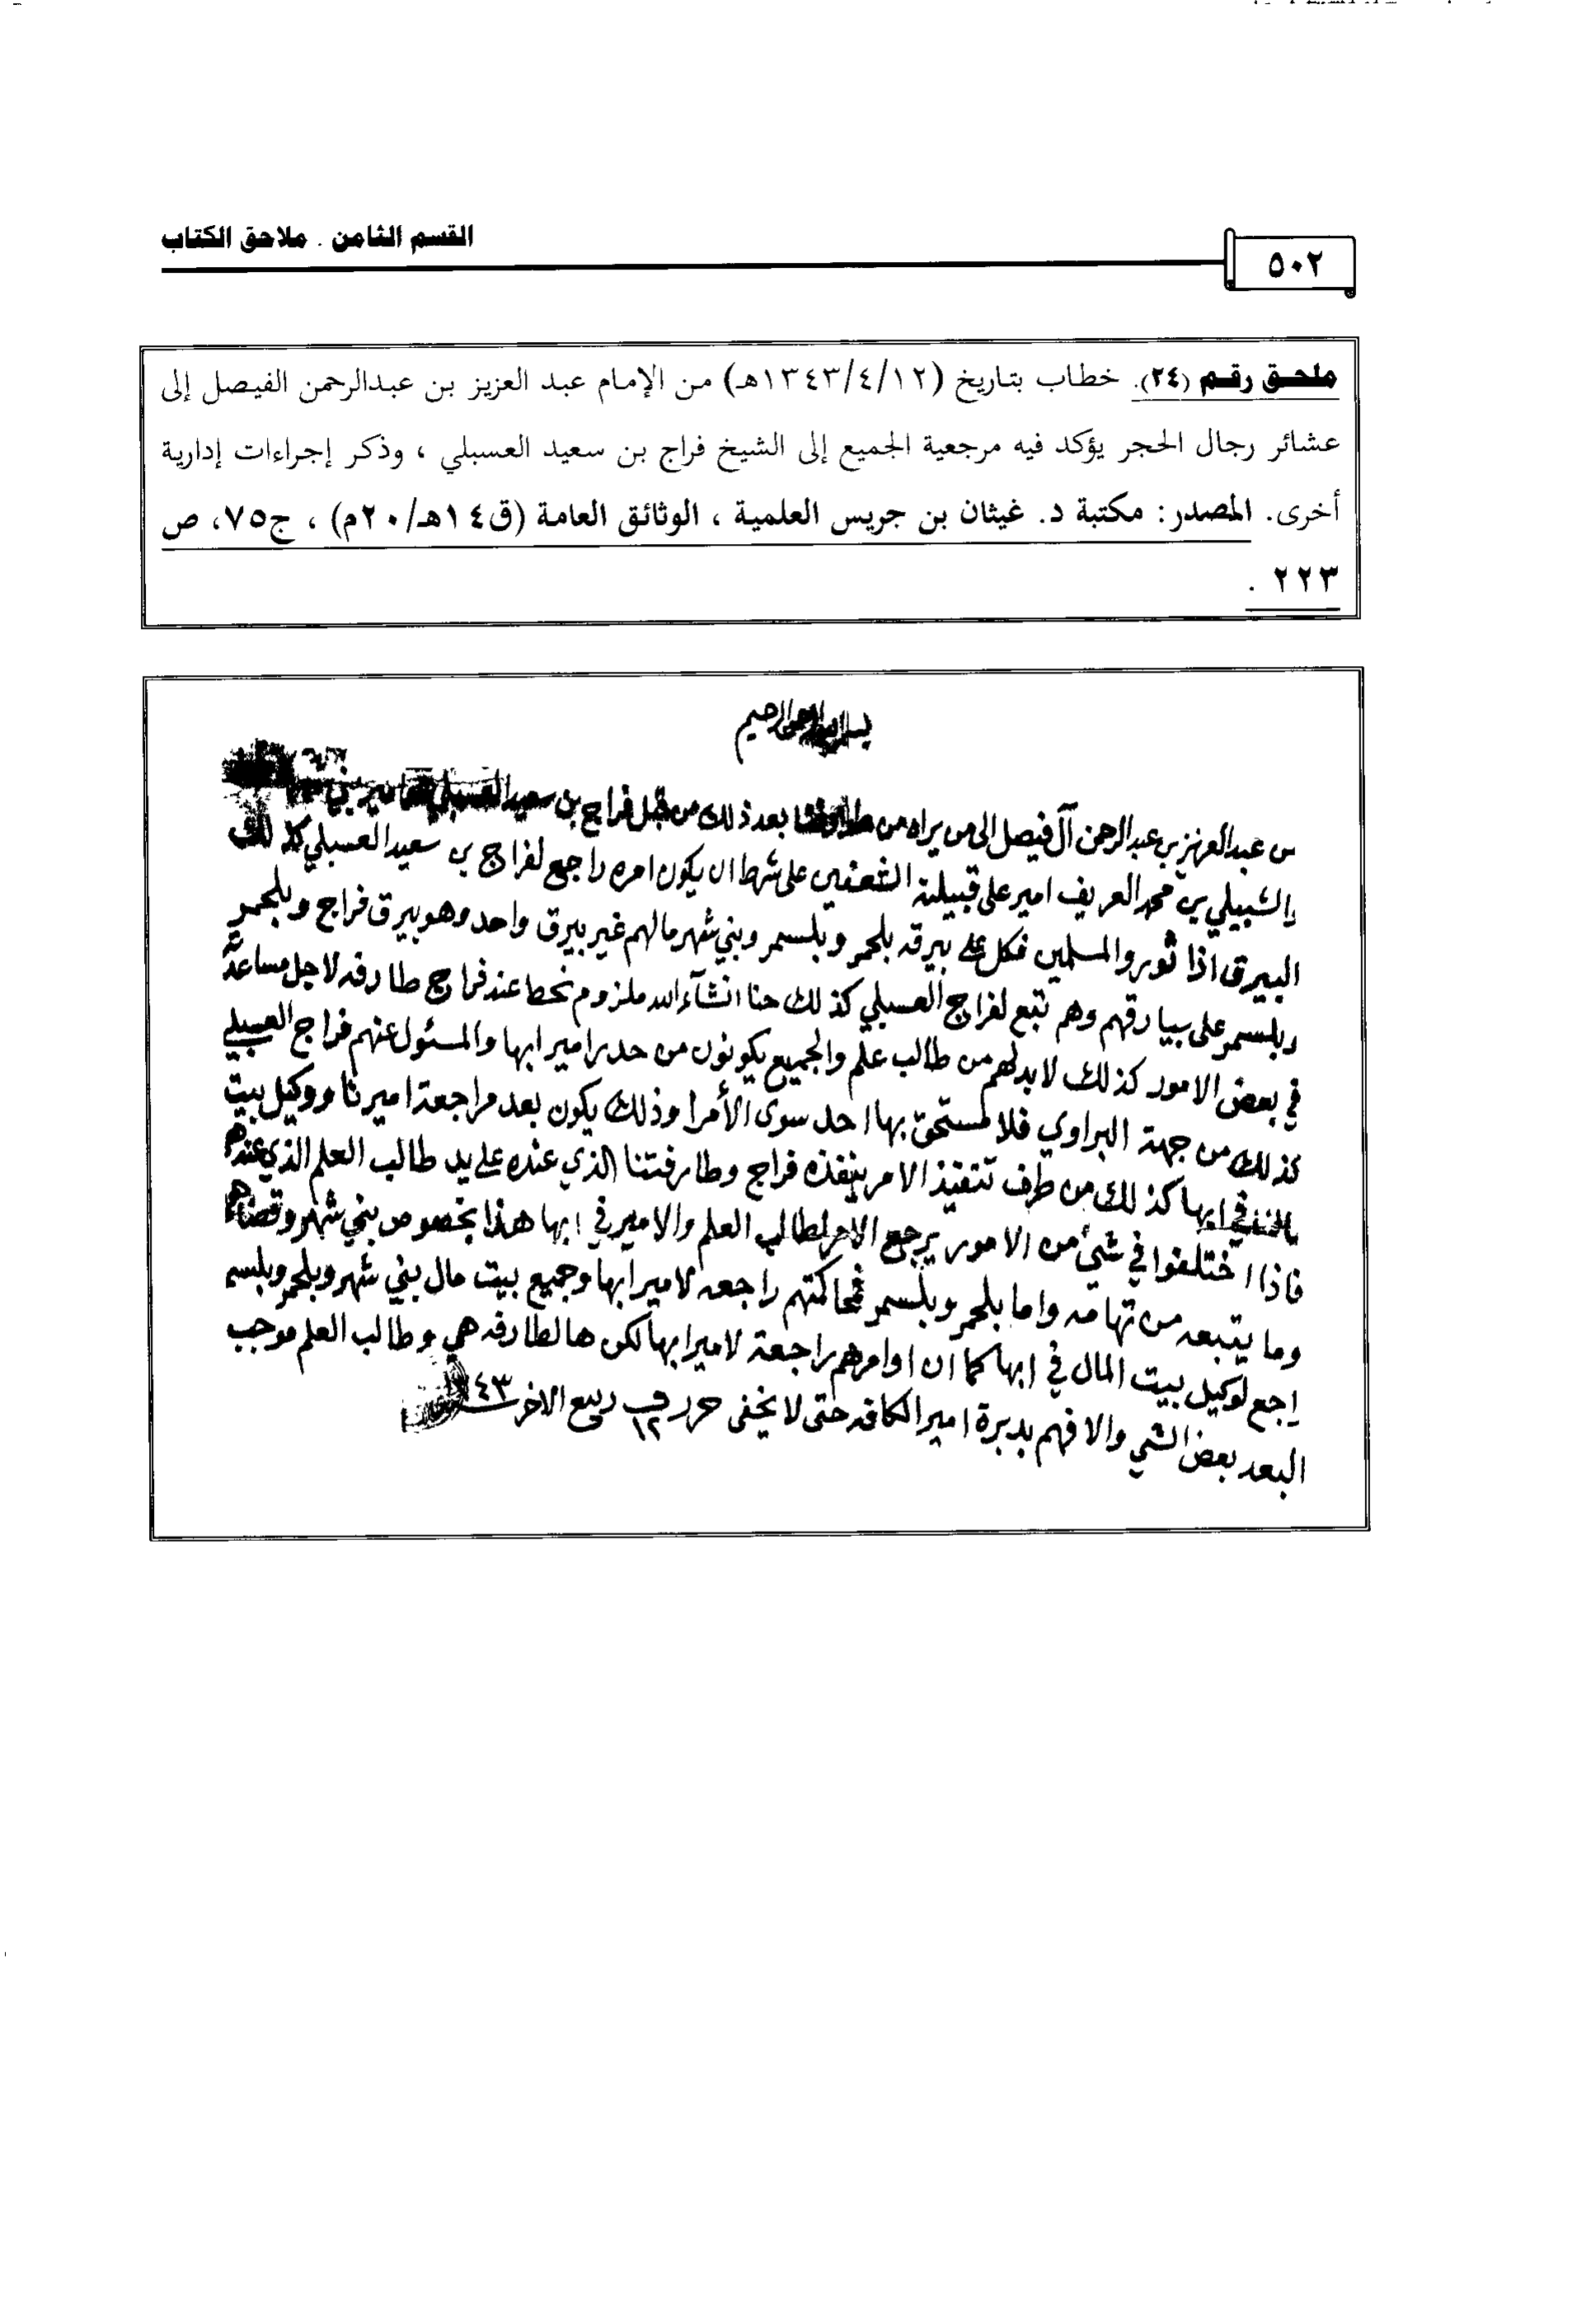 القسم الثامن . ملاحق الكتاب
٥٠٢
ملحق رقم (٢٤). خطاب بتاريخ (١٣٤٣/٤/١٢هـ) من الإمام عبد العزيز بن عبدالرحمن الفيصل إلى
عشائر رجال الحجر يؤكد فيه مرجعية الجميع إلى الشيخ فراج بن سعيد العسبلي ، وذكر إجراءات إدارية
أخرى. المصدر: مكتبة د. غيثان بن جريس العلمية ، الوثائق العامة (ق١٤هـ/٢٠م) ، ج٧٥، ص
٢٢٣ .
بسم الله الرحمن الرحيم
من عبدالعزيز بن عبدالرحمن آل فيصل الى من يراه من بعد ذلك من قبل فراج بن سعيد العسبلي امير بني
الشبيلي بن محمد العريف امير على قبيلته على شرط ان يكون امره راجع لفراج بن سعيد العسبلي كذلك
البيرق اذا ثوروا المسلمين فكل على بيرقه بلحمر وبلسمر وبني شهر مالهم غير بيرق واحد وهو بيرق فراج وبلحمر
وبلسمر على بيارقهم وهم تبع لفراج العسبلي كذلك حنا انشآء الله ملزوم نحط عند فراج طارفه لاجل مساعدة
في بعض الامور كذلك لابد لهم من طالب علم والجميع يكونون من حدر امير ابها والمسئول عنهم فراج العسبلي
كذلك من جهة البراوي فلا مستحق بها احد سوى الأمرا وذلك يكون بعد مراجعة اميرنا ووكيل بيت
في ابها كذلك من طرف تنفيذ الامر ينفذه فراج وطارفتنا الذي عنده على يد طالب العلم الذي عندهم
فاذا اختلفوا في شيء من الامور يرجع الامر لطالب العلم والامير في ابها هذا بخصوص بني شهر وقضاهم
وما يتبعه من تهامه واما بلحمر وبلسمر فمحاكمتهم راجعه لامير ابها وجميع بيت مال بني شهر وبلحمر وبلسمر
راجع لوكيل بيت المال في ابها كما ان اوامرهم راجعة لامير ابها لكن هالطارفه هي وطالب العلم موجب
البعد بعض الشي والا فهم بدبرة امير الكافه حتى لا يخفى حرر في ١٢ ربيع الاخر ١٣٤٣